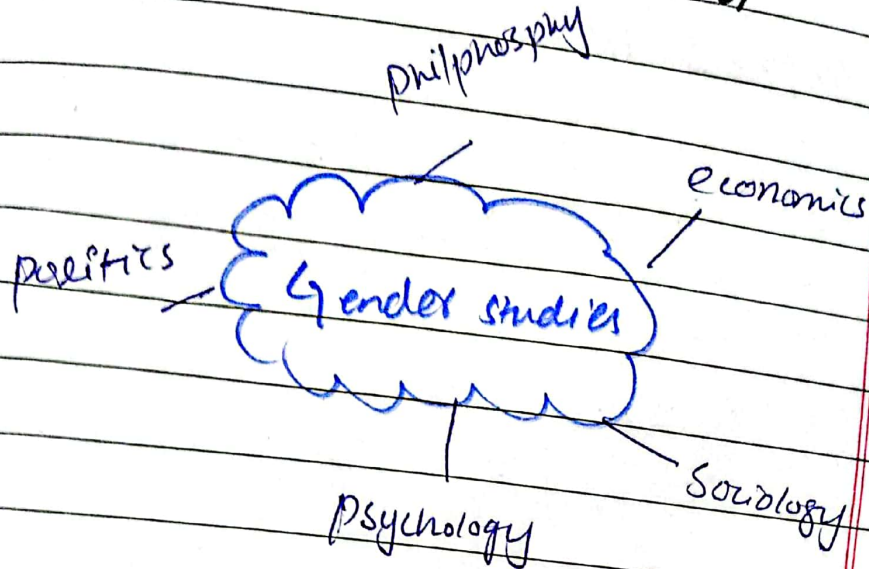 philphosphy
economics
politics
Gender studies
sociology
psychology